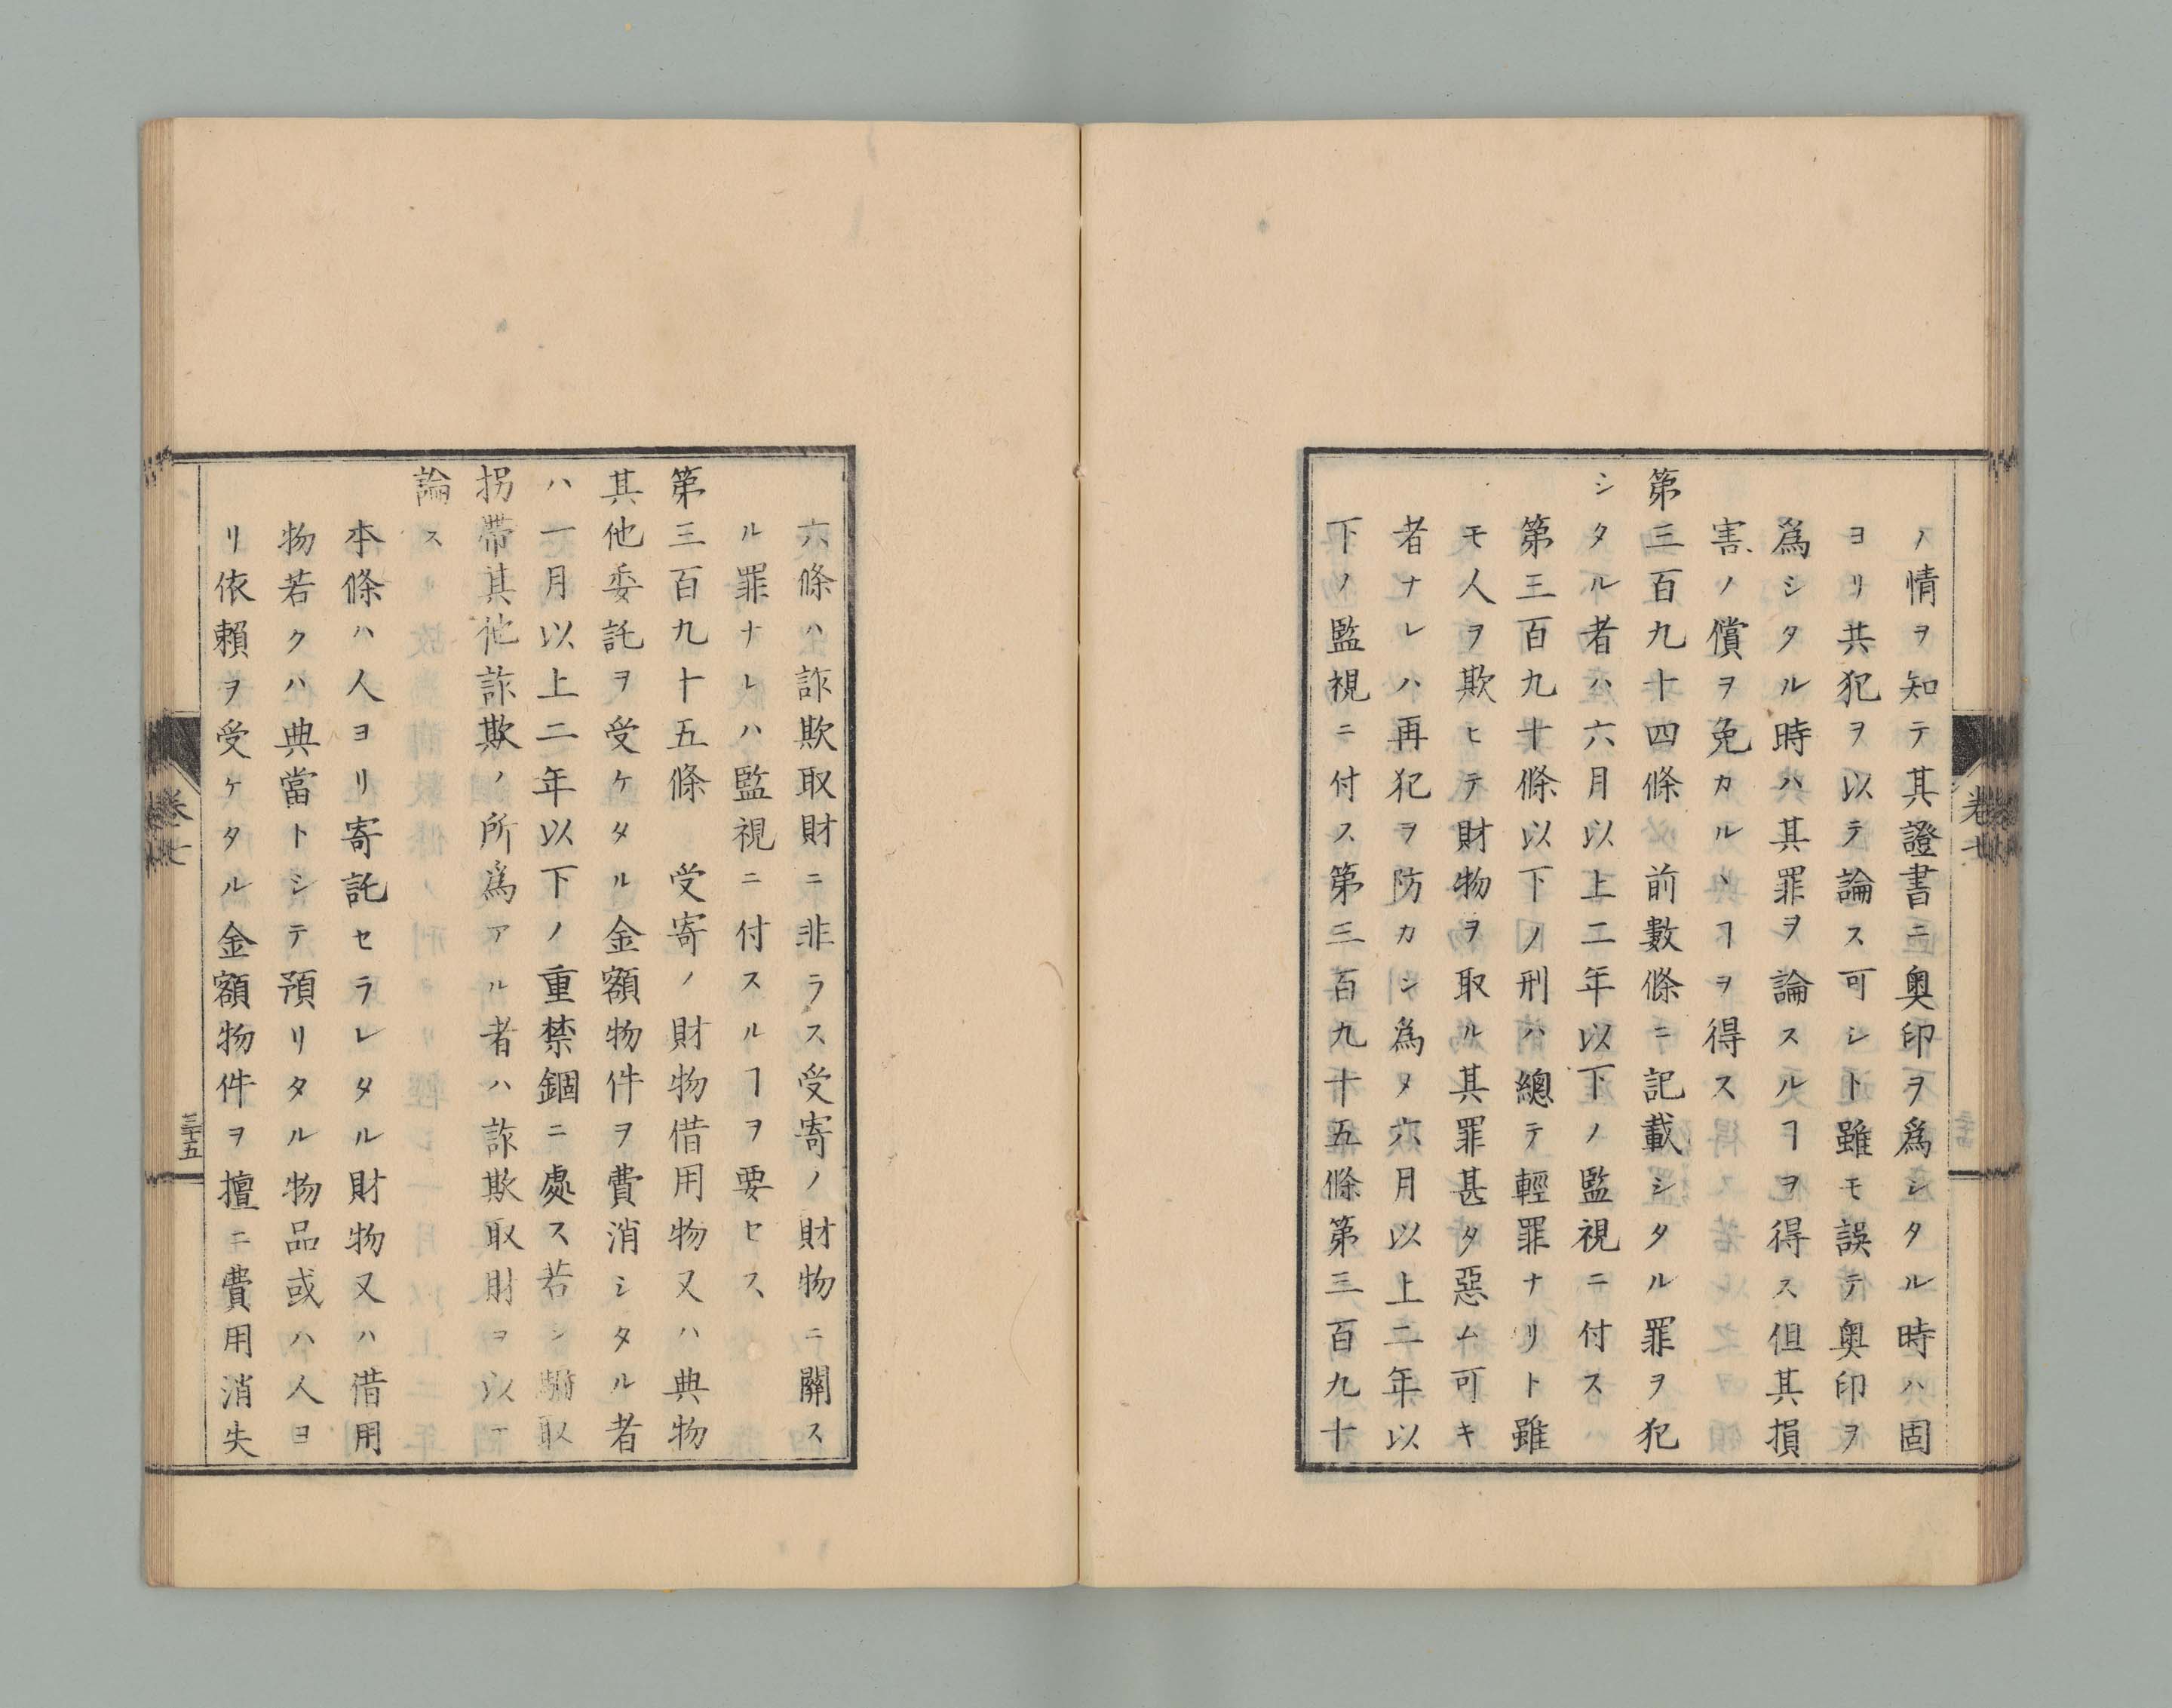 ノ情ヲ知テ其證書ニ奧印ヲ爲シタル時ハ固
ヨリ共犯ヲ以テ論ス可シト雖モ誤テ奧印ヲ
爲シタル時ハ其罪ヲ論スルヿヲ得ス但其損
害ノ償ヲ免カルヽヿヲ得ス
第三百九十四條 前數條ニ記載シタル罪ヲ犯
シタル者ハ六月以上二年以下ノ監視ニ付ス
第三百九十條以下ノ刑ハ總テ輕罪ナリト雖
モ人ヲ欺ヒテ財物ヲ取ル其罪甚タ惡ム可キ
者ナレハ再犯ヲ防カン爲メ六月以上二年以
下ノ監視ニ付ス第三百九十五條第三百九十
卷七
六條ハ詐欺取財ニ非ラス受寄ノ財物ニ關ス
ル罪ナレハ監視ニ付スルヿヲ要セス
第三百九十五條 受寄ノ財物借用物又ハ典物
其他委託ヲ受ケタル金額物件ヲ費消シタル者
ハ一月以上二年以下ノ重禁錮ニ處ス若シ騙取
拐帶其他詐欺ノ所爲アル者ハ詐欺取財ヲ以テ
論ス
本條ハ人ヨリ寄託セラレタル財物又ハ借用
物若クハ典當トシテ預リタル物品或ハ人ヨ
リ依賴ヲ受ケタル金額物件ヲ擅ニ費用消失
卷七
三十五